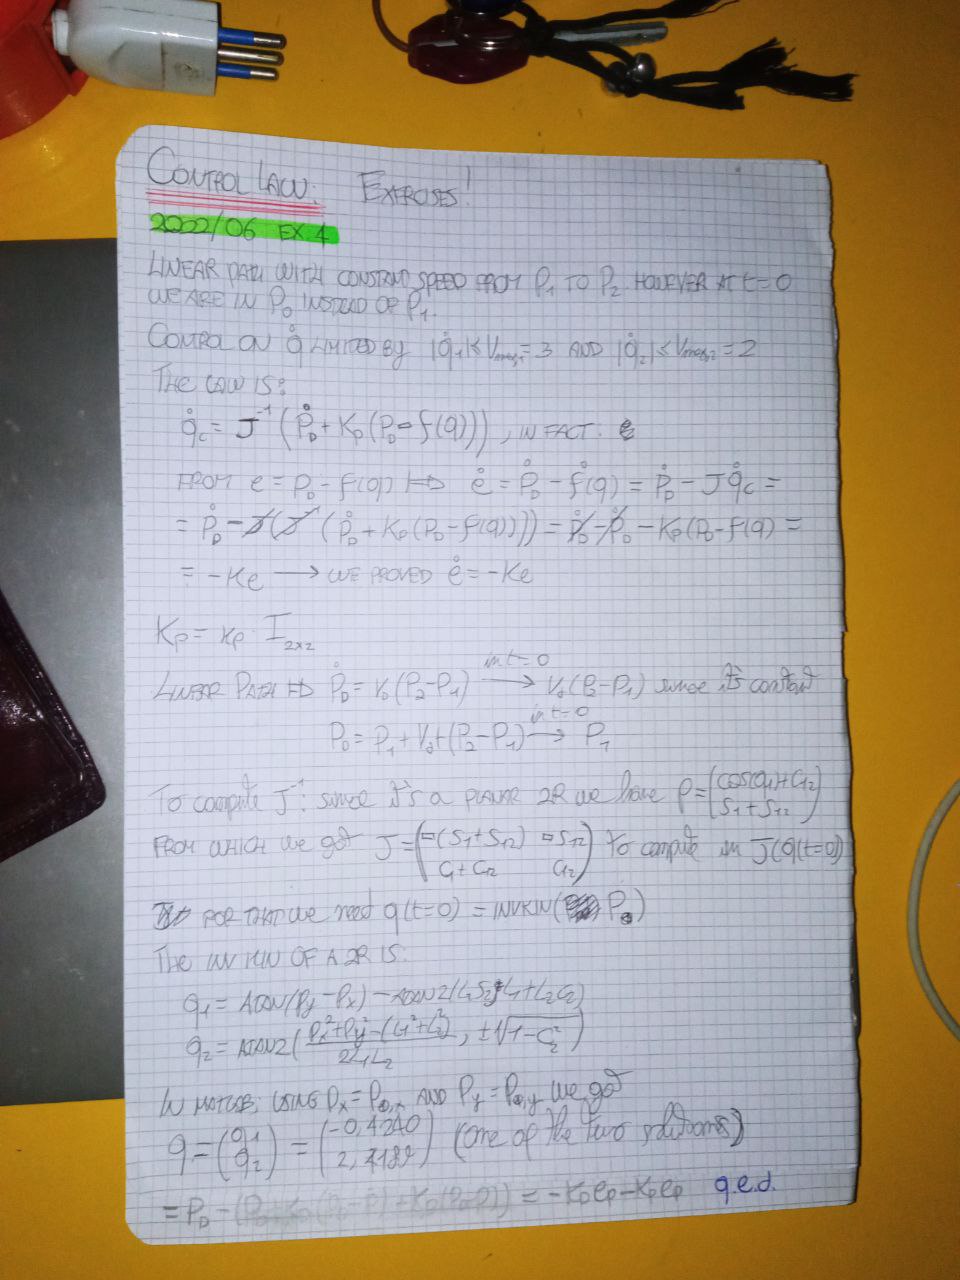 CONTROL LAW: EXERCISES!
2022/06 EX 4
LINEAR PATH WITH CONSTANT SPEED FROM P₁ TO P₂. HOWEVER AT t=0
WE ARE IN P₀ INSTEAD OF P₁.
CONTROL ON q̇ LIMITED BY |q̇₁|≤Vmax,1=3 AND |q̇₂|≤Vmax,2=2
THE LAW IS:
q̇c = J⁻¹(ṖD+KP(PD-f(q))), IN FACT:
FROM e = PD-f(q) ⟹ ė = ṖD-ḟ(q) = ṖD-Jq̇c =
= ṖD-J(J⁻¹(ṖD+KP(PD-f(q)))) = ṖD-ṖD-KP(PD-f(q)) =
= -Ke → WE PROVED ė=-Ke
KP = kP · I2x2
LINEAR PATH ⟹ ṖD = Vd(P₂-P₁) in t=0 → Vd(P₂-P₁) since it's constant
PD = P₁+Vdt(P₂-P₁) in t=0 → P₁
To compute J⁻¹: since it's a PLANAR 2R we have P=(cos(q₁)+C₁₂
S₁+S₁₂)
FROM WHICH we get J=(-(S₁+S₁₂) -S₁₂
C₁+C₁₂ C₁₂) to compute in J(q(t=0))
FOR THAT we need q(t=0) = INVKIN(P₀)
THE INV KIN OF A 2R IS:
q₁ = ATAN(Py-Px)-ATAN2(L₂S₂, L₁+L₂C₂)
q₂ = ATAN2(Px²+Py²-(L₁²+L₂²)/2L₁L₂, ±√1-C₂²)
IN MATLAB, USING Px=P₀,x AND Py=P₀,y we get
q=(q₁ q₂) = (-0,4240 2,4189) (one of the two solutions)
= PD - = -KPeP-KDeP q.e.d.